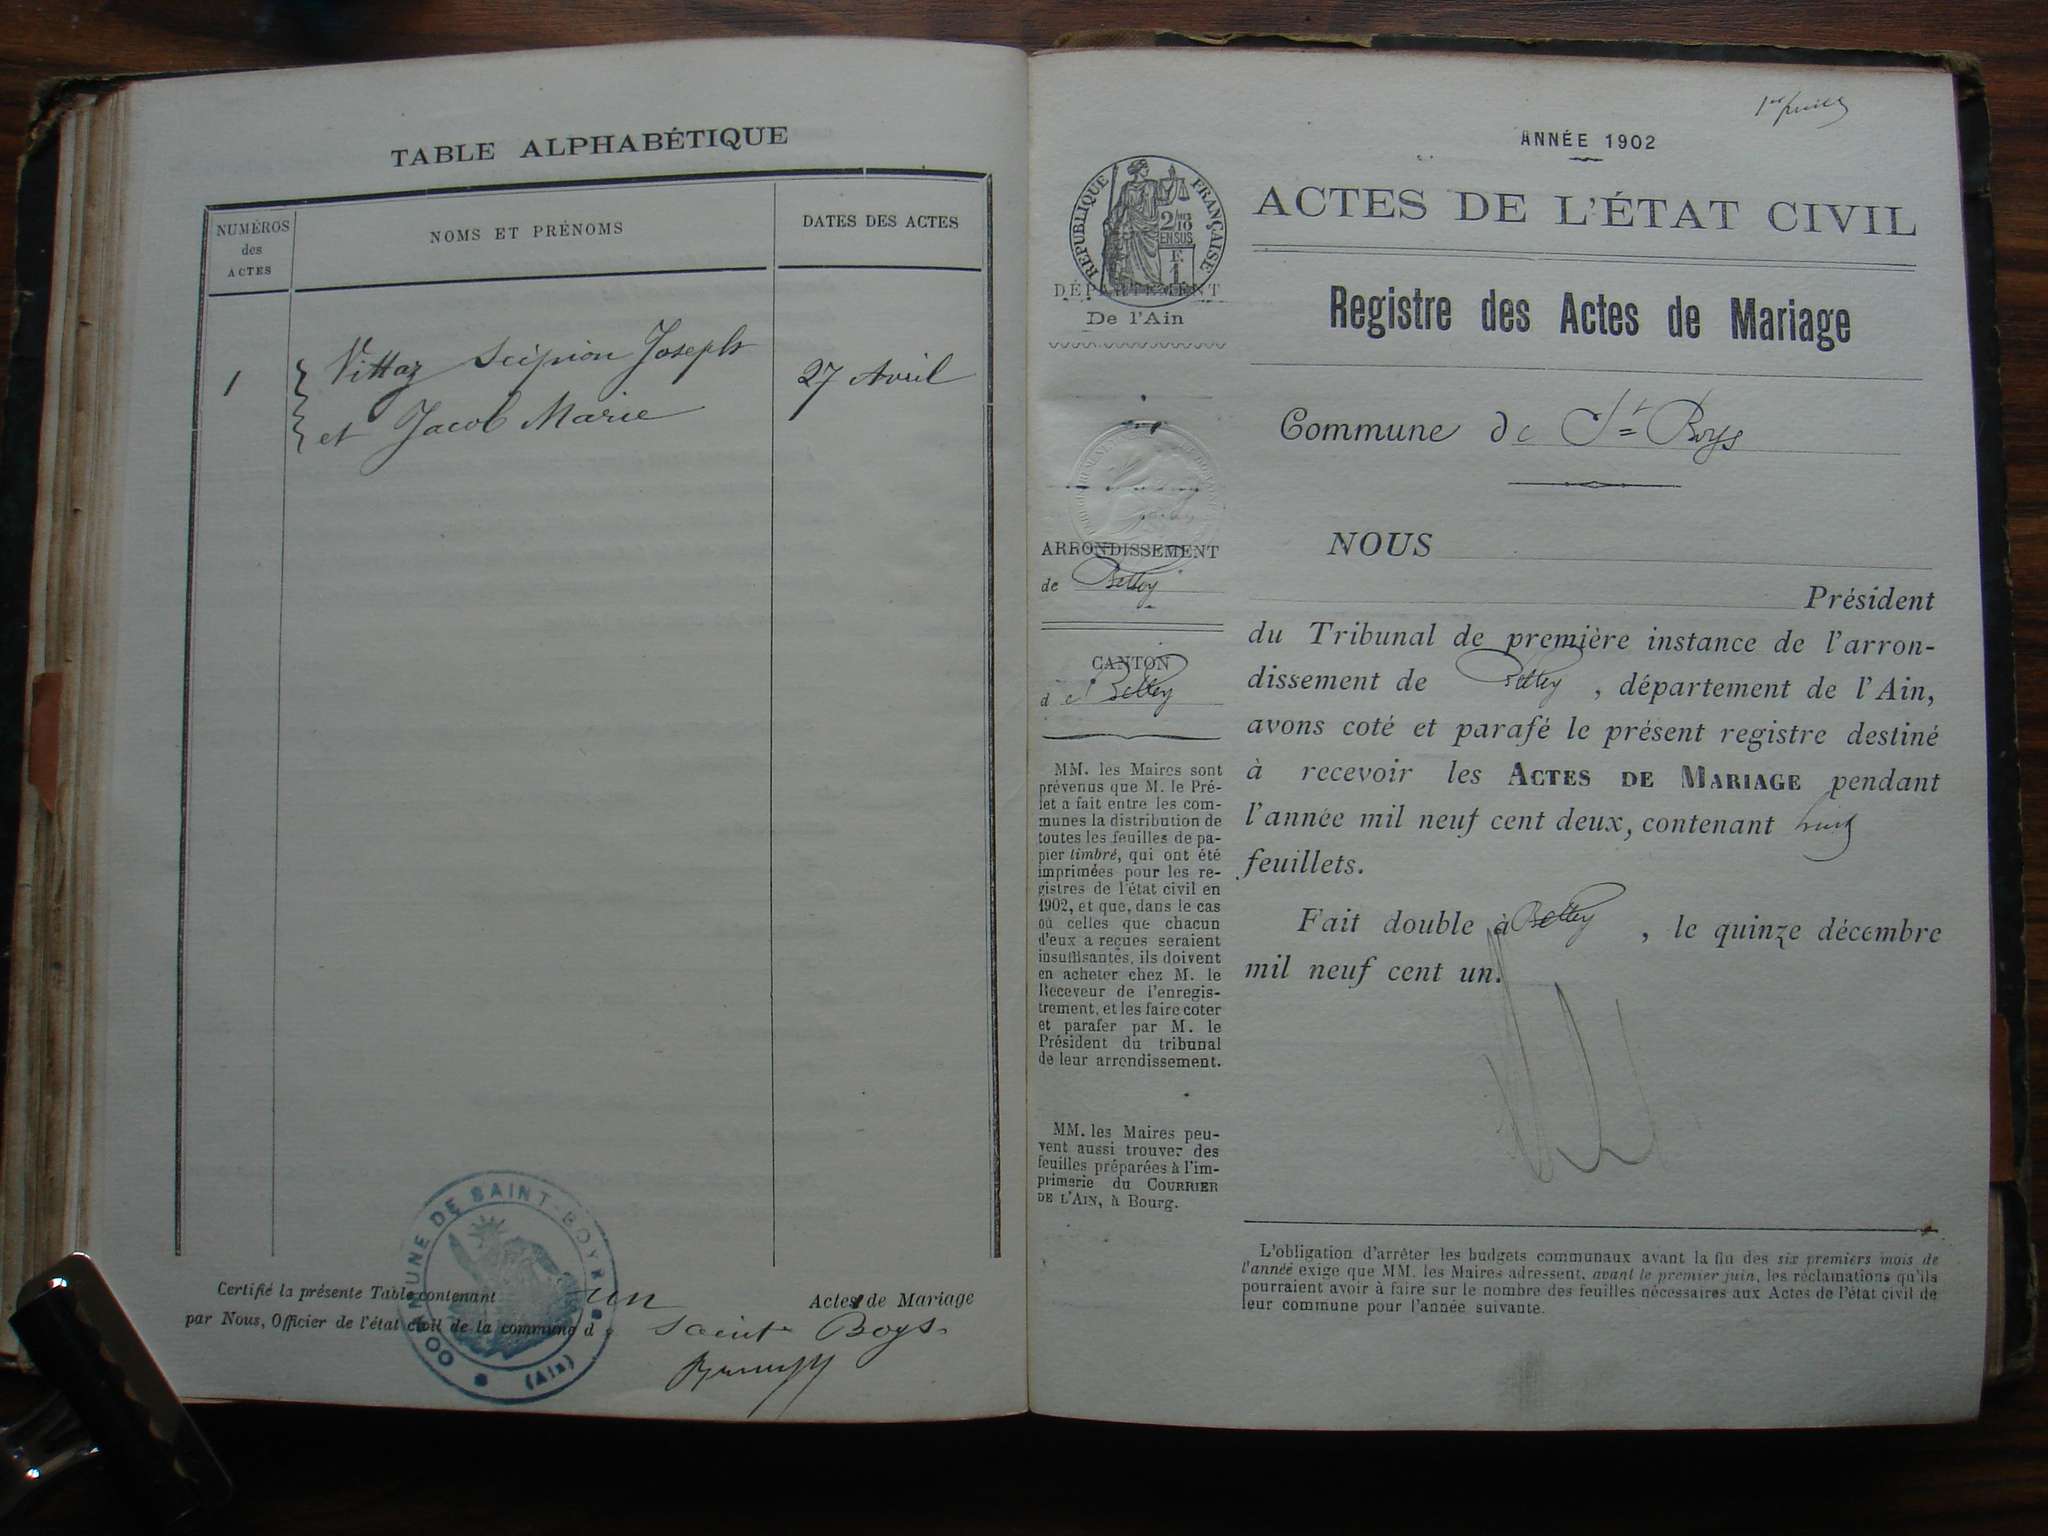 TABLE ALPHABÉTIQUE
NUMÉROS
des
ACTES
NOMS ET PRÉNOMS
DATES DES ACTES
1
Vittaz Scipion Joseph
et Jacob Marie
27 Avril
Certifié la présente Table contenant un Actes de Mariage
par Nous, Officier de l'état civil de la commune de Saint Boys
COMMUNE DE SAINT-BOYS
(Ain)
1er
ANNÉE 1902
ACTES DE L'ÉTAT CIVIL
RÉPUBLIQUE FRANÇAISE
2/10
EN SUS
F.
1
DÉPARTEMENT
De l'Ain
Registre des Actes de Mariage
Commune de St Boys
ARRONDISSEMENT
de Belley
CANTON
de Belley
MM. les Maires sont
prévenus que M. le Pré-
fet a fait entre les com-
munes la distribution de
toutes les feuilles de pa-
pier timbré, qui ont été
imprimées pour les re-
gistres de l'état civil en
1902, et que, dans le cas
où celles que chacun
d'eux a reçues seraient
insuffisantes, ils doivent
en acheter chez M. le
Receveur de l'enregis-
trement, et les faire coter
et parafer par M. le
Président du tribunal
de leur arrondissement.
MM. les Maires peu-
vent aussi trouver des
feuilles préparées à l'im-
primerie du COURRIER
DE L'AIN, à Bourg.
NOUS
Président
du Tribunal de première instance de l'arron-
dissement de Belley, département de l'Ain,
avons coté et parafé le présent registre destiné
à recevoir les ACTES DE MARIAGE pendant
l'année mil neuf cent deux, contenant huit
feuillets.
Fait double à Belley, le quinze décembre
mil neuf cent un.
L'obligation d'arrêter les budgets communaux avant la fin des six premiers mois de
l'année exige que MM. les Maires adressent, avant le premier juin, les réclamations qu'ils
pourraient avoir à faire sur le nombre des feuilles nécessaires aux Actes de l'état civil de
leur commune pour l'année suivante.